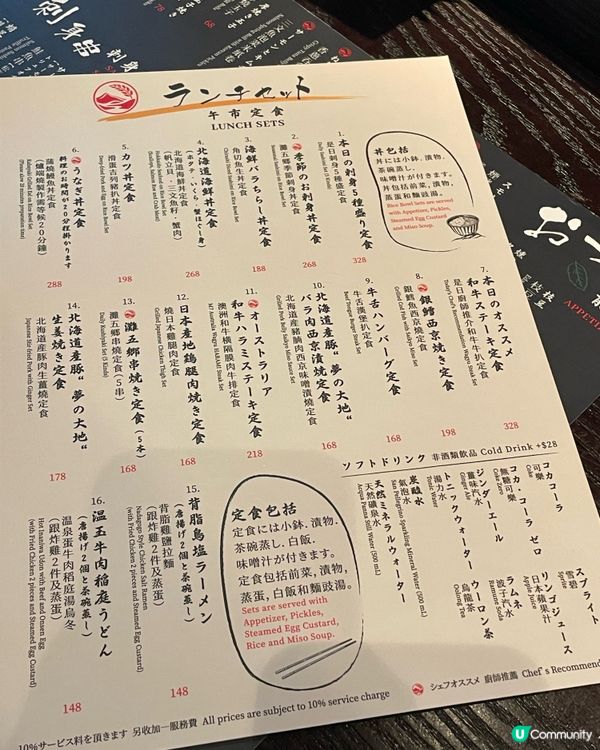 ランチセット
午市定食
LUNCH SETS
丼包括
丼には小鉢, 漬物,
茶碗蒸し,
味噌汁が付きます。
丼包括前菜, 漬物,
蒸蛋和麵豉湯。
Rice Bowl Sets are served
with Appetizer, Pickles,
Steamed Egg Custard
and Miso Soup.
1. 本日の刺身5種盛り定食
是日刺身5種盛定食
328
2. 季節のお刺身丼定食
灘五郷季節刺身丼定食
268
3. 海鮮バラちらし丼定食
角切魚生丼定食
188
4. 北海道海鮮丼定食
(ホタテ・いくら・蟹ほぐし身)
北海道海鮮丼定食
(帆立貝、三文魚籽、蟹肉)
268
5. カツ丼定食
滑蛋吉列豬扒丼定食
198
6. うなぎ丼定食
料理のお時間が20分程掛かります
蒲燒鰻魚丼定食
(爐端燒製作需等候20分鐘)
288
7. 本日のオススメ
和牛ステーキ定食
是日廚師推介和牛扒定食
328
8. 銀鱈西京焼き定食
銀鱈魚西京燒定食
198
9. 牛舌ハンバーグ定食
牛舌漢堡扒定食
168
10. 北海道産豚“夢の大地“
バラ肉西京漬焼定食
北海道產豬腩肉西京味噌漬燒定食
168
11. オーストラリア
和牛ハラミステーキ定食
澳洲和牛橫隔膜肉牛排定食
218
12. 日本産地鶏腿肉焼き定食
燒日本雞腿肉定食
168
13. 灘五郷串焼き定食(5本)
灘五郷串燒定食(5串)
Daily Kushiyaki Set (5 Kinds)
168
14. 北海道産豚“夢の大地“
生姜焼き定食
北海道產豚肉生薑燒定食
178
15. 背脂鳥塩ラーメン
(唐揚げ2個と茶碗蒸し)
背脂雞鹽拉麵
(跟炸雞2件及蒸蛋)
Nadagogo Style Chicken Salt Ramen
(with Fried Chicken 2 pieces and Steamed Egg Custard)
148
16. 温玉牛肉稲庭うどん
(唐揚げ2個と茶碗蒸し)
温泉蛋牛肉稻庭湯烏冬
(跟炸雞2件及蒸蛋)
Hot Inaniwa Udon with Beef and Onsen Egg
(with Fried Chicken 2 pieces and Steamed Egg Custard)
148
定食包括
定食には小鉢, 漬物.
茶碗蒸し, 白飯.
味噌汁が付きます。
定食包括前菜, 漬物,
蒸蛋, 白飯和麵豉湯。
Sets are served with
Appetizer, Pickles,
Steamed Egg Custard,
Rice and Miso Soup.
ソフトドリンク 非酒類飲品 Cold Drink +$28
コカコーラ
可樂
Coke
コカ・コーラ ゼロ
無糖可樂
Coke Zero
ジンジャーエール
薑味汽水
Ginger Ale
トニックウォーター
湯力水
Tonic Water
炭酸水
氣泡水
San Pellegrino Sparkling Mineral Water (500 mL)
天然ミネラルウォーター
天然礦泉水
Acqua Panna Still Water (500 mL)
スプライト
雪碧
リンゴジュース
日本蘋果汁
Apple Juice
ラムネ
波子汽水
Ramune Soda
ウーロン茶
烏龍茶
Oolong Tea
シェフオススメ 廚師推薦 Chef's Recommend
10%サービス料を頂きます 另收加一服務費 All prices are subject to 10% service charge
U Community